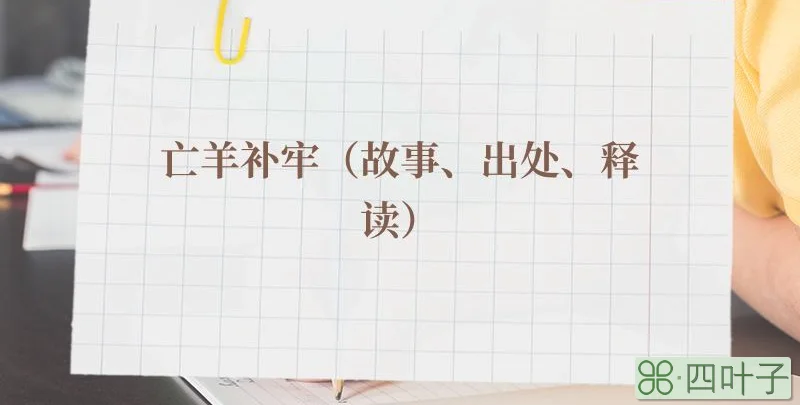 亡羊补牢（故事、出处、释
读）
四叶子